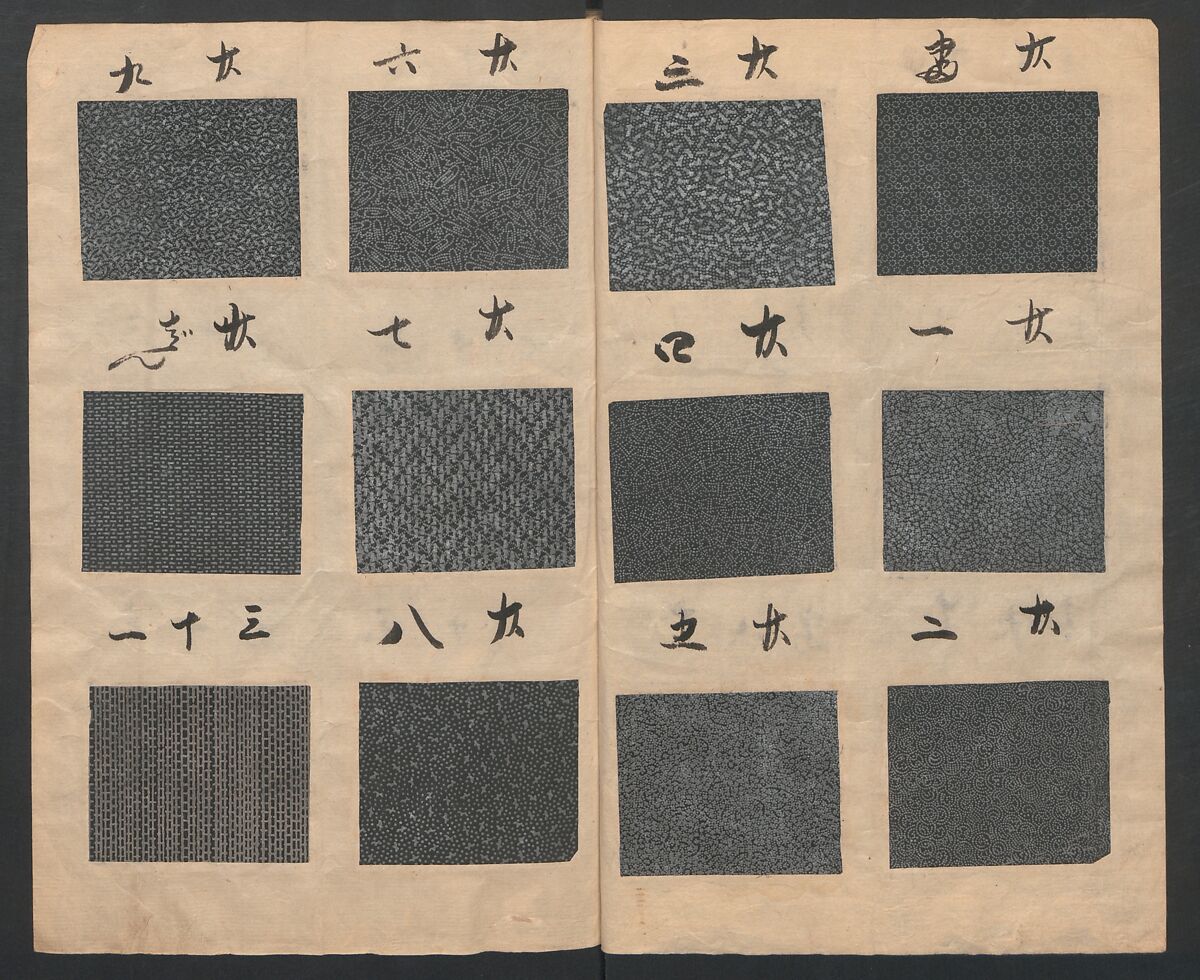 廿番
廿一
廿二
廿三
廿四
廿五
廿六
廿七
廿八
廿九
卅ばん
三十一